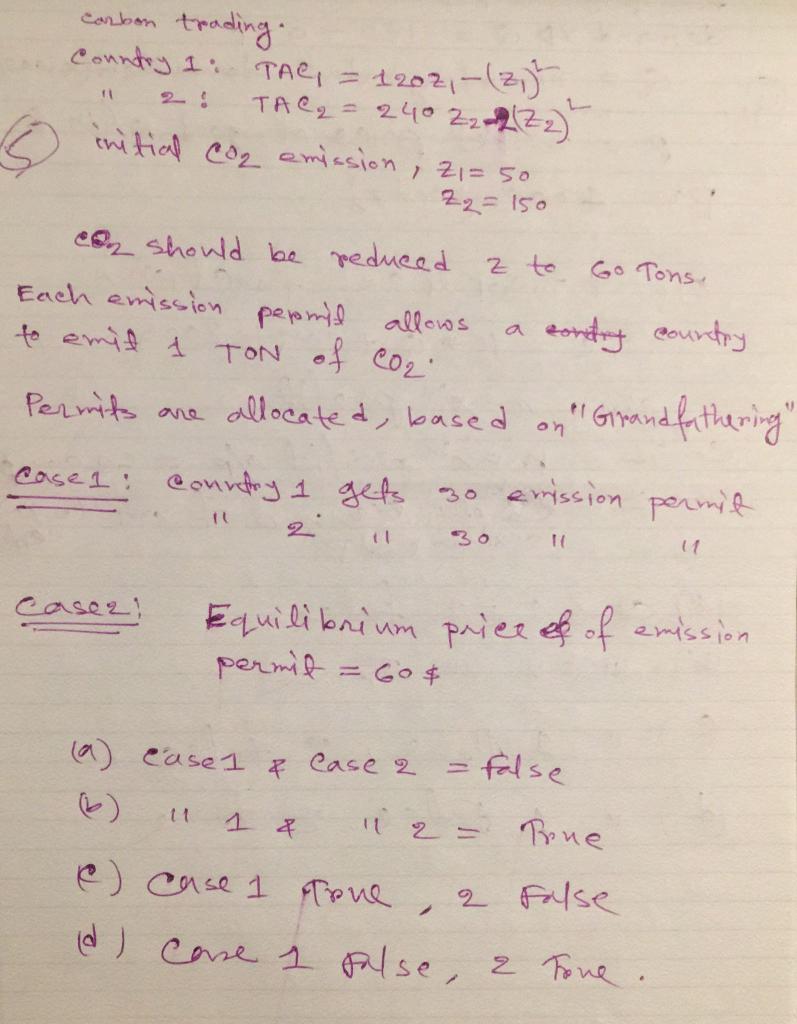 carbon trading.
Country 1: TAC1 = 120z1-(z1)²
" 2: TAC2 = 240 z2-2(z2)²
5 initial CO2 emission, z1= 50
z2= 150
CO2 should be reduced z to 60 Tons.
Each emission permit allows a country
to emit 1 TON of CO2.
Permits are allocated, based on "Grandfathering"
Case1: country 1 gets 30 emission permit
" 2 " 30 " "
Case2: Equilibrium price of emission
permit = 60 $
(a) case1 & Case 2 = false
(b) " 1 & " 2 = True
(c) Case 1 True, 2 False
(d) Case 1 False, 2 True.